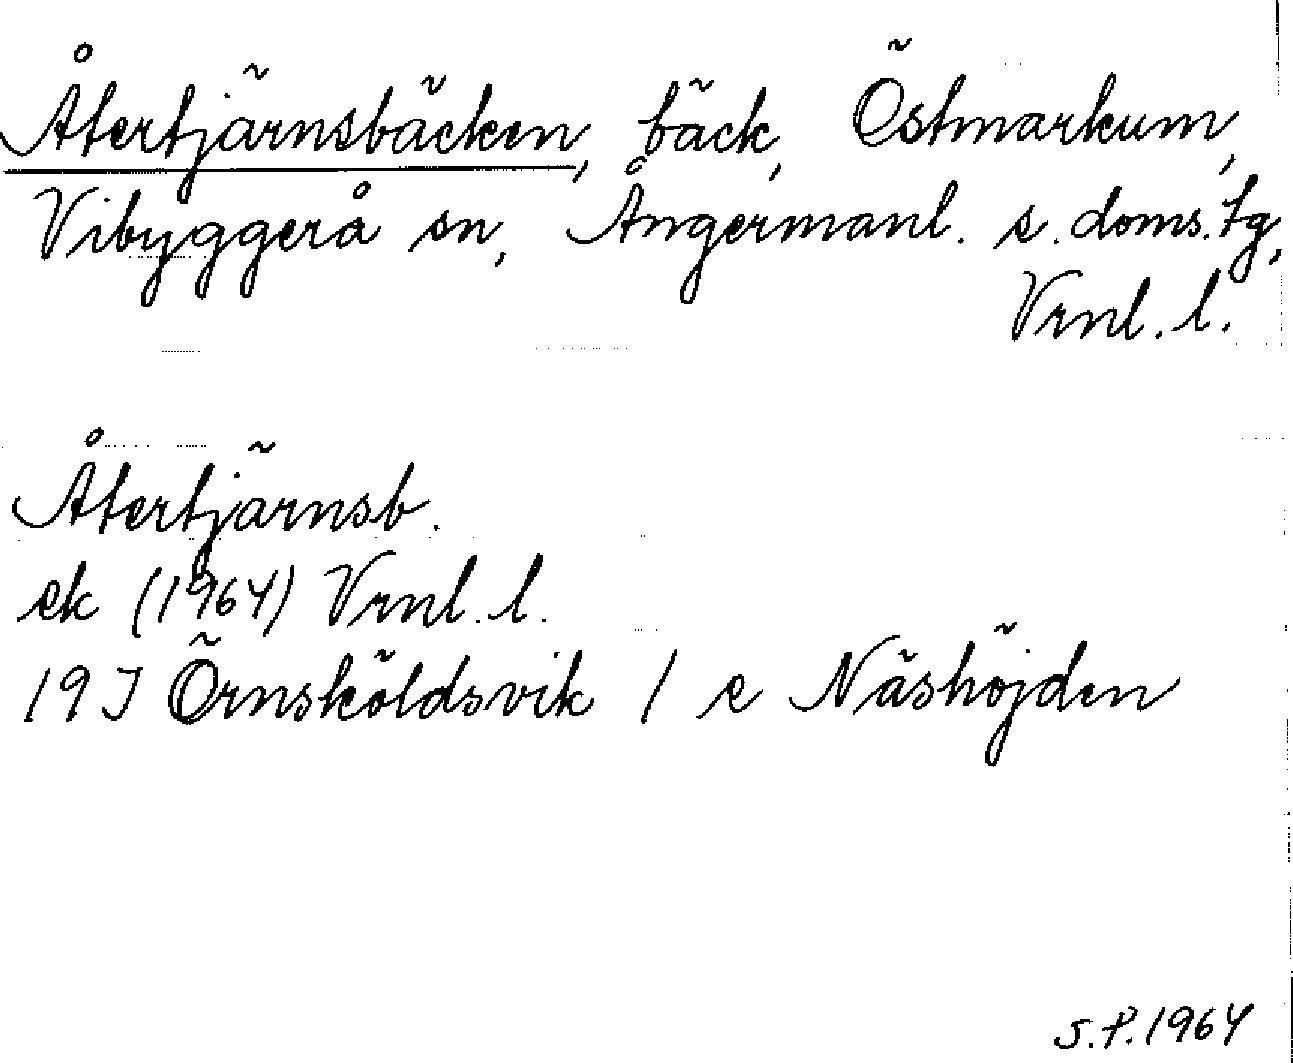 Återtjärnsbäcken, bäck, Östmarkum,
Vibyggerå sn, Ångermanl. s. doms. tg,
Vrnl. l.
Återtjärnsb.
ek (1964) Vrnl. l.
19J Örnsköldsvik / e Näshöjden
S.P. 1964